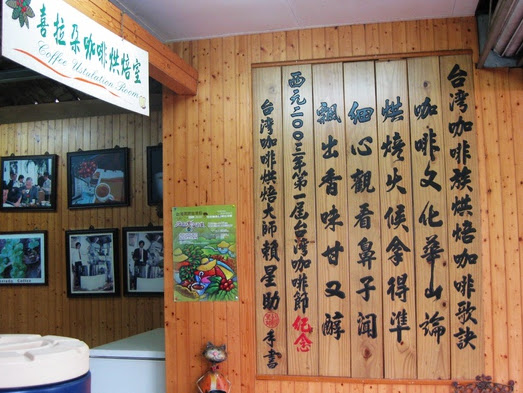 喜拉朵咖啡烘焙室
Coffee Ustulation Room
台灣咖啡族烘焙咖啡歌訣
咖啡文化華山論
烘燒火候拿得準
細心觀看鼻子聞
飄出香味甘又醇
西元二00三年第一屆台灣咖啡節紀念
台灣咖啡烘焙大師賴星助 手書
Coffee